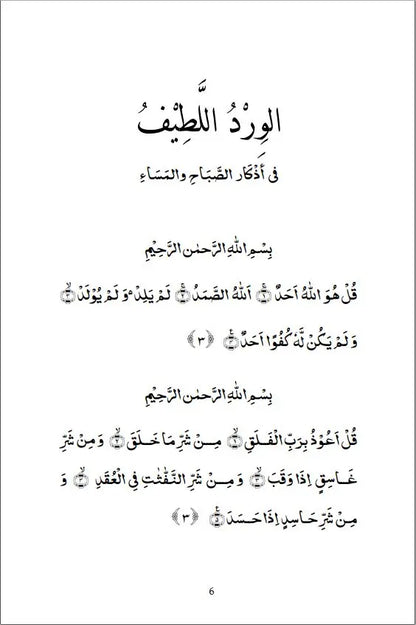 الوِرْدُ اللَّطِيْفُ
فى أَذْكَارِ الصَّبَاحِ والمَسَاءِ
بِسْمِ اللهِ الرَّحْمٰنِ الرَّحِيْمِ
قُلْ هُوَ اللهُ اَحَدٌ ۝١ اَللهُ الصَّمَدُ ۝٢ لَمْ يَلِدْ ەۙ وَلَمْ يُوْلَدْ ۝٣
وَلَمْ يَكُنْ لَّهٗ كُفُوًا اَحَدٌ ۝٤ ﴿٣﴾
بِسْمِ اللهِ الرَّحْمٰنِ الرَّحِيْمِ
قُلْ اَعُوْذُ بِرَبِّ الْفَلَقِ ۝١ مِنْ شَرِّ مَا خَلَقَ ۝٢ وَمِنْ شَرِّ
غَاسِقٍ اِذَا وَقَبَ ۝٣ وَمِنْ شَرِّ النَّفّٰثٰتِ فِى الْعُقَدِ ۝٤ وَ
مِنْ شَرِّ حَاسِدٍ اِذَا حَسَدَ ۝٥ ﴿٣﴾
6